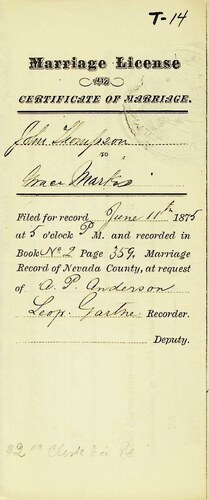 T-14
Marriage License
AND
CERTIFICATE OF MARRIAGE.
John Thompson
TO
Grace Marks
Filed for record June 11th 1875
at 5 o'clock P M. and recorded in
Book No 2 Page 359, Marriage
Record of Nevada County, at request
of A. P. Anderson
Leop. Garthe Recorder.
Deputy.
$2